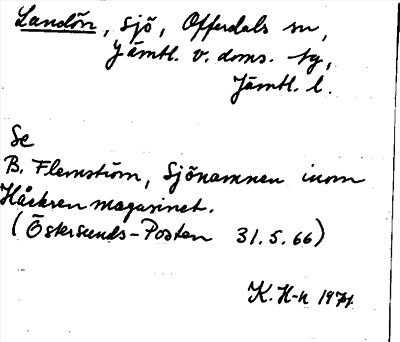 Landön, sjö, Offerdals sn,
Jämtl. v. doms. tg,
Jämtl. l.
Se
B. Flemström, Sjönamnen inom
Håckren magasinet.
(Östersunds-Posten 31.5.66)
K. H-n 1971.